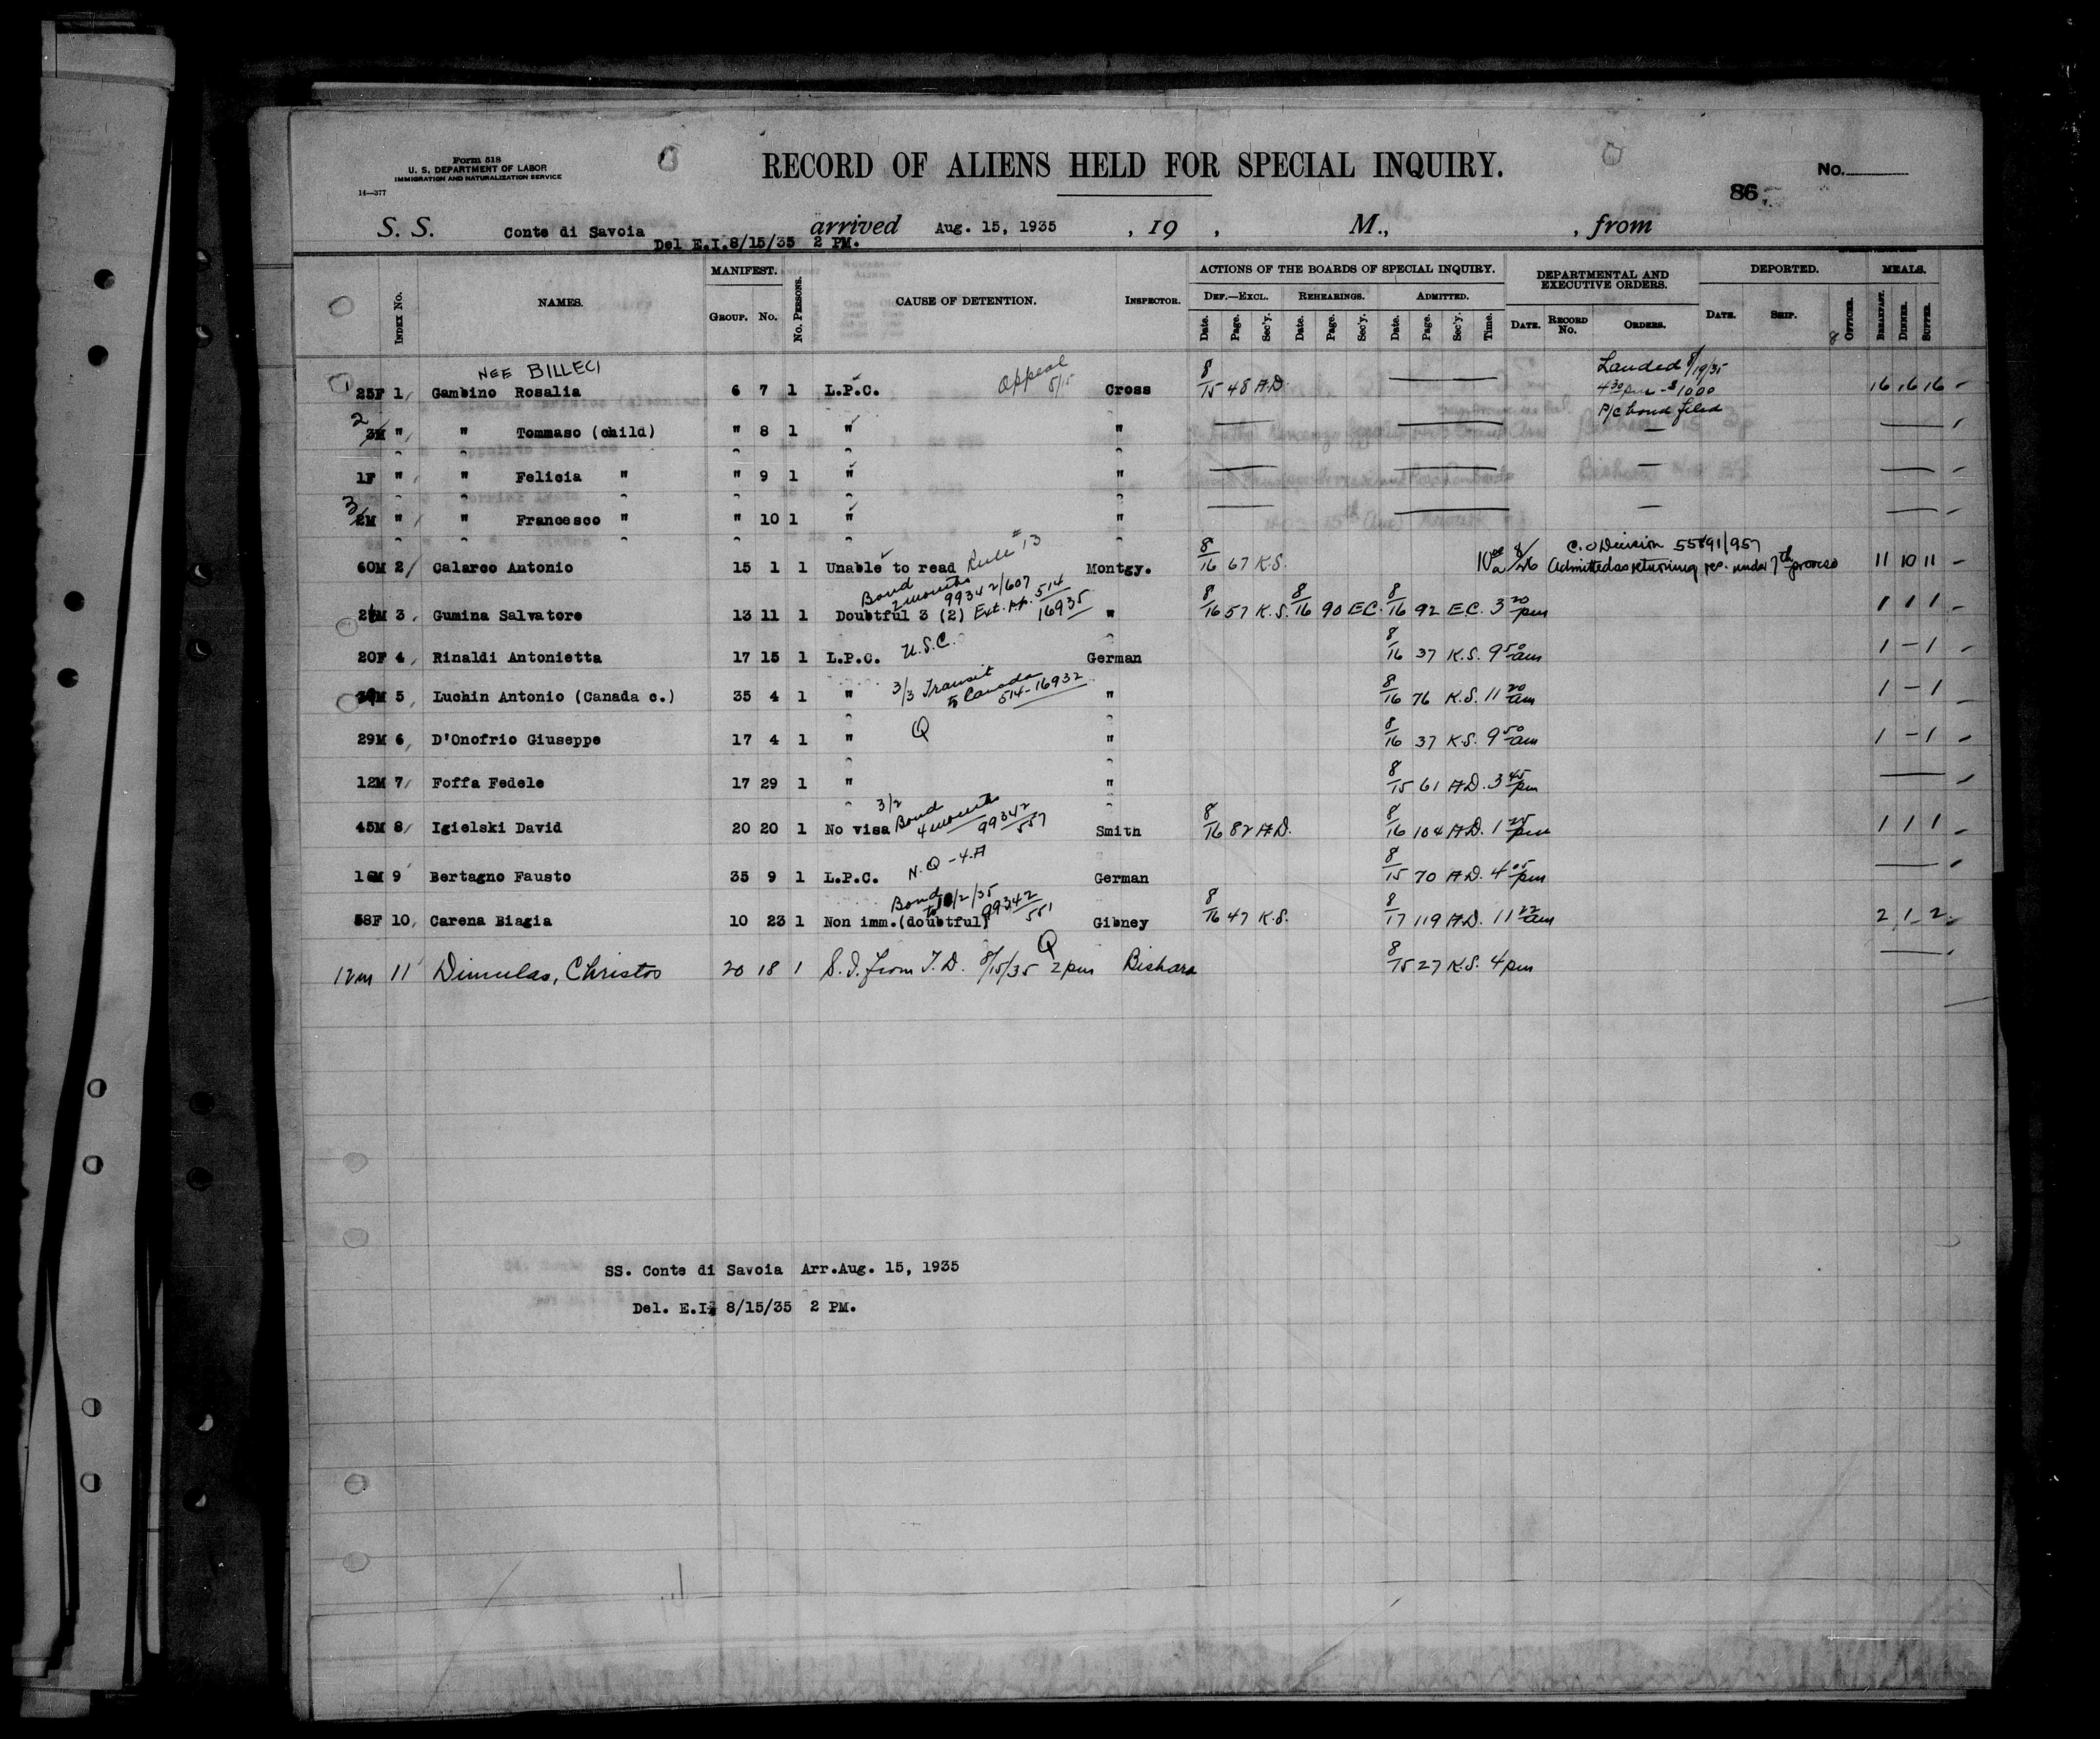 Form 518
U. S. DEPARTMENT OF LABOR
IMMIGRATION AND NATURALIZATION SERVICE
14—377
RECORD OF ALIENS HELD FOR SPECIAL INQUIRY.
No.
86
S. S. Conte di Savoia arrived Aug. 15, 1935 , 19 , M., , from
Del E.I.8/15/35 2 PM.
INDEX No. NAMES. MANIFEST. GROUP. No. No. PERSONS. CAUSE OF DETENTION. INSPECTOR. ACTIONS OF THE BOARDS OF SPECIAL INQUIRY. DEF.—EXCL. Date. Page. Sec'y. REHEARINGS. Date. Page. Sec'y. ADMITTED. Date. Page. Sec'y. Time. DEPARTMENTAL AND EXECUTIVE ORDERS. DATE. RECORD No. ORDERS. DEPORTED. DATE. SHIP. OFFICER. MEALS. BREAKFAST. DINNER. SUPPER.
NEE BILLECI
25F 1 Gambino Rosalia 6 7 1 L.P.C. Appeal 8/15 Cross 8/15 48 A.D. — Landed 8/19/35 4 30 pm - $1000 P/c bond filed 16 16 16
2 3M " " Tommaso (child) " 8 1 " " — — — —
1F " " Felicia " " 9 1 " " — — — —
3 2M " " Francesco " " 10 1 " " — — — —
60M 2 Calarco Antonio 15 1 1 Unable to read Rule #13 Montgy. 8/16 67 K.S. 10 00 a 8/26 C.O Decision 55891/957 Admitted as returning res. under 7th proviso 11 10 11
Bond 2 months 99342/607
M 3 Gumina Salvatore 13 11 1 Doubtful 3 (2) Ext. pp. 514 16935 " 8/16 57 K.S. 8/16 90 E.C. 8/16 92 E.C. 3 20 pm 1 1 1
20F 4 Rinaldi Antonietta 17 15 1 L.P.C. U.S.C. German 8/16 37 K.S. 9 50 am 1 – 1
M 5 Luchin Antonio (Canada c.) 35 4 1 " 3/3 Transit to Canada 514-16932 " 8/16 76 K.S. 11 20 am 1 – 1
29M 6 D'Onofrio Giuseppe 17 4 1 " Q " 8/16 37 K.S. 9 50 am 1 – 1
12M 7 Foffa Fedele 17 29 1 " " 8/15 61 A.D. 3 45 pm —
45M 8 Igielski David 20 20 1 No visa 3/2 Bond 4 months 99342/557 Smith 8/16 82 A.D. 8/16 104 A.D. 1 25 pm 1 1 1
16M 9 Bertagno Fausto 35 9 1 L.P.C. N.Q-4.A German 8/15 70 A.D. 4 05 pm —
58F 10 Carena Biagia 10 23 1 Non imm.(doubtful) Bond to 10/2/35 99342/551 Gibney 8/16 47 K.S. 8/17 119 A.D. 11 22 am 2 1 2
12m 11 Dimulas, Christos 20 18 1 S.I. from T.D. 8/15/35 Q 2 pm Bishara 8/15 27 K.S. 4 pm —
SS. Conte di Savoia Arr.Aug. 15, 1935
Del. E.I. 8/15/35 2 PM.